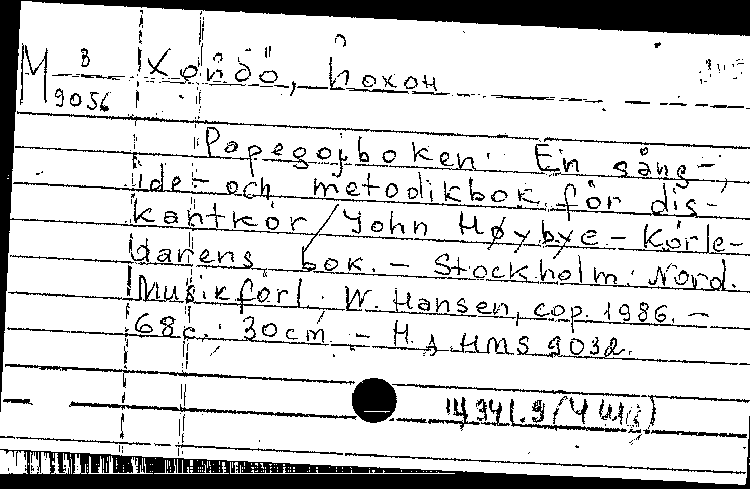 М В/9056 Хойбю, Йохон
Papegojboken. En sång-,
ide- och metodikbok för dis-
kantkör / John Høybye - Körle-
darens bok. - Stockholm: Nord.
Musikförl.; W. Hansen, cop. 1986. -
68с.; 30cm. - Н. д. HMS 9032.